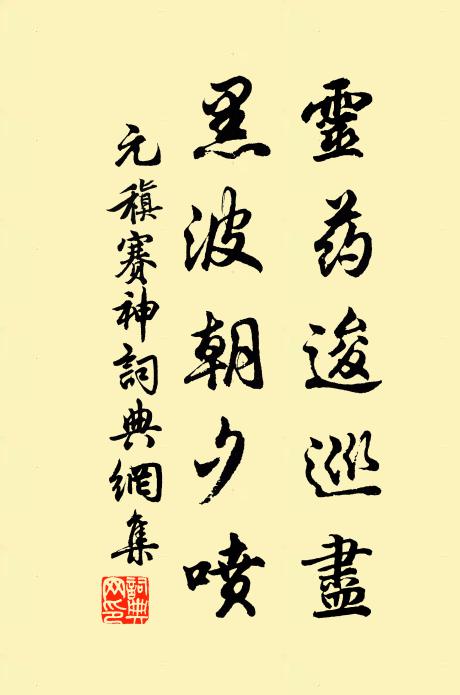 靈药逡巡盡
黑波朝夕噴
元稹賽神詞典網集
詞典网印